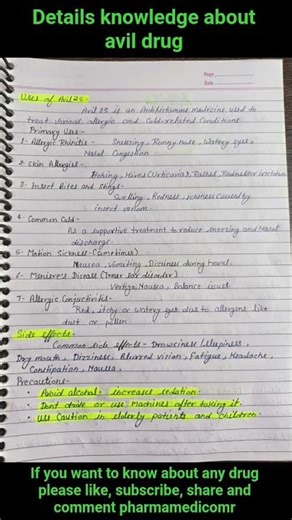 Details knowledge about
avil drug
Page
Date
Uses of Avil 25-
Avil 25 is an Antihistamine medicine used to
treat various allergic and Cold-related Conditions
Primary Uses-
1- Allergic Rhinitis - Sneezing, Runny nose, Watery Eyes,
Nasal Congestion
2- Skin Allergies-
Itching, Hives (Urticaria), Rashes, Redness or irritation
3- Insect Bites and Stings-
Swelling, Redness, itchiness caused by
insect venom.
4- Common Cold-
As a supportive treatment to reduce sneezing and Nasal
discharge
5- Motion Sickness- (Sometimes)
Nausea, Vomiting, Dizziness during travel.
6- Meniere's Disease (Inner ear disorder)
Vertigo, Nausea, Balance issues
7- Allergic Conjuctivitis-
Red, itchy or watery eyes due to allergens like
dust or pollen
Side effects-
Common side effects - Drowsiness / sleepiness,
Dry mouth, Dizziness, Blurred vision, Fatigue, Headache,
Constipation, Nausea.
Precautions-
• Avoid alcohol: increases sedation.
• Don't drive or use Machines after taking it.
• Use Caution in elderly patients and children.
If you want to know about any drug
please like, subscribe, share and
comment pharmamedicomr